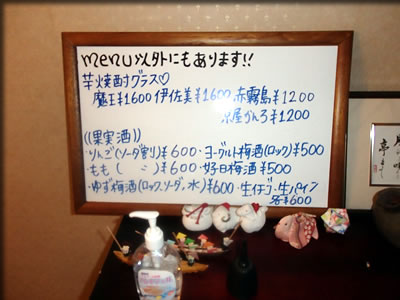 menu以外にもあります!!
芋焼酎グラス♡
魔王¥1600 伊佐美¥1600 赤霧島¥1200
京屋かんろ¥1200
((果実酒))
・りんご(ソーダ割り)¥600・ヨーグルト梅酒(ロック)¥500
・もも( 〃 )¥600・好日梅酒¥500
・ゆず梅酒(ロック、ソーダ、水)¥600・生イチゴ・生パイン
各¥600